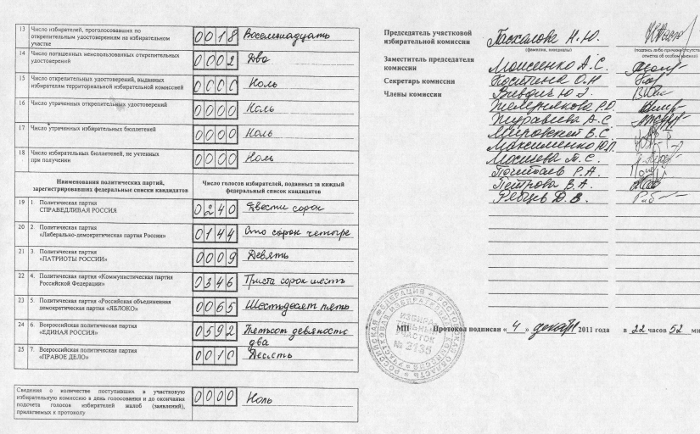 13 Число избирателей, проголосовавших по открепительным удостоверениям на избирательном участке 0 0 1 8 Восемнадцать
14 Число погашенных неиспользованных открепительных удостоверений 0 0 0 2 Два
15 Число открепительных удостоверений, выданных избирателям территориальной избирательной комиссией 0 0 0 0 Ноль
16 Число утраченных открепительных удостоверений 0 0 0 0 Ноль
17 Число утраченных избирательных бюллетеней 0 0 0 0 Ноль
18 Число избирательных бюллетеней, не учтенных при получении 0 0 0 0 Ноль
Наименования политических партий, зарегистрировавших федеральные списки кандидатов
Число голосов избирателей, поданных за каждый федеральный список кандидатов
19 1. Политическая партия СПРАВЕДЛИВАЯ РОССИЯ 0 2 4 0 Двести сорок
20 2. Политическая партия «Либерально-демократическая партия России» 0 1 4 4 Сто сорок четыре
21 3. Политическая партия «ПАТРИОТЫ РОССИИ» 0 0 0 9 Девять
22 4. Политическая партия «Коммунистическая партия Российской Федерации» 0 3 4 6 Триста сорок шесть
23 5. Политическая партия «Российская объединенная демократическая партия «ЯБЛОКО» 0 0 6 5 Шестьдесят пять
24 6. Всероссийская политическая партия «ЕДИНАЯ РОССИЯ» 0 5 9 2 Пятьсот девяносто два
25 7. Всероссийская политическая партия «ПРАВОЕ ДЕЛО» 0 0 1 0 Десять
Сведения о количестве поступивших в участковую избирательную комиссию в день голосования и до окончания подсчета голосов избирателей жалоб (заявлений), прилагаемых к протоколу 0 0 0 0 Ноль
Председатель участковой избирательной комиссии Паскалова Н.Ю.
(фамилия, инициалы)
Заместитель председателя комиссии Моисеенко А.С.
Секретарь комиссии Костина О.Н
Члены комиссии
Журавлева А.С
Мировский В.С
Максименко Ю.П.
Маслова М.С.
Почитаев Р.А.
Петрова В.А.
Рябень Д.В.
№ 2155
МП Протокол подписан « 4 » декабря 2011 года в 22 часов 52 ми